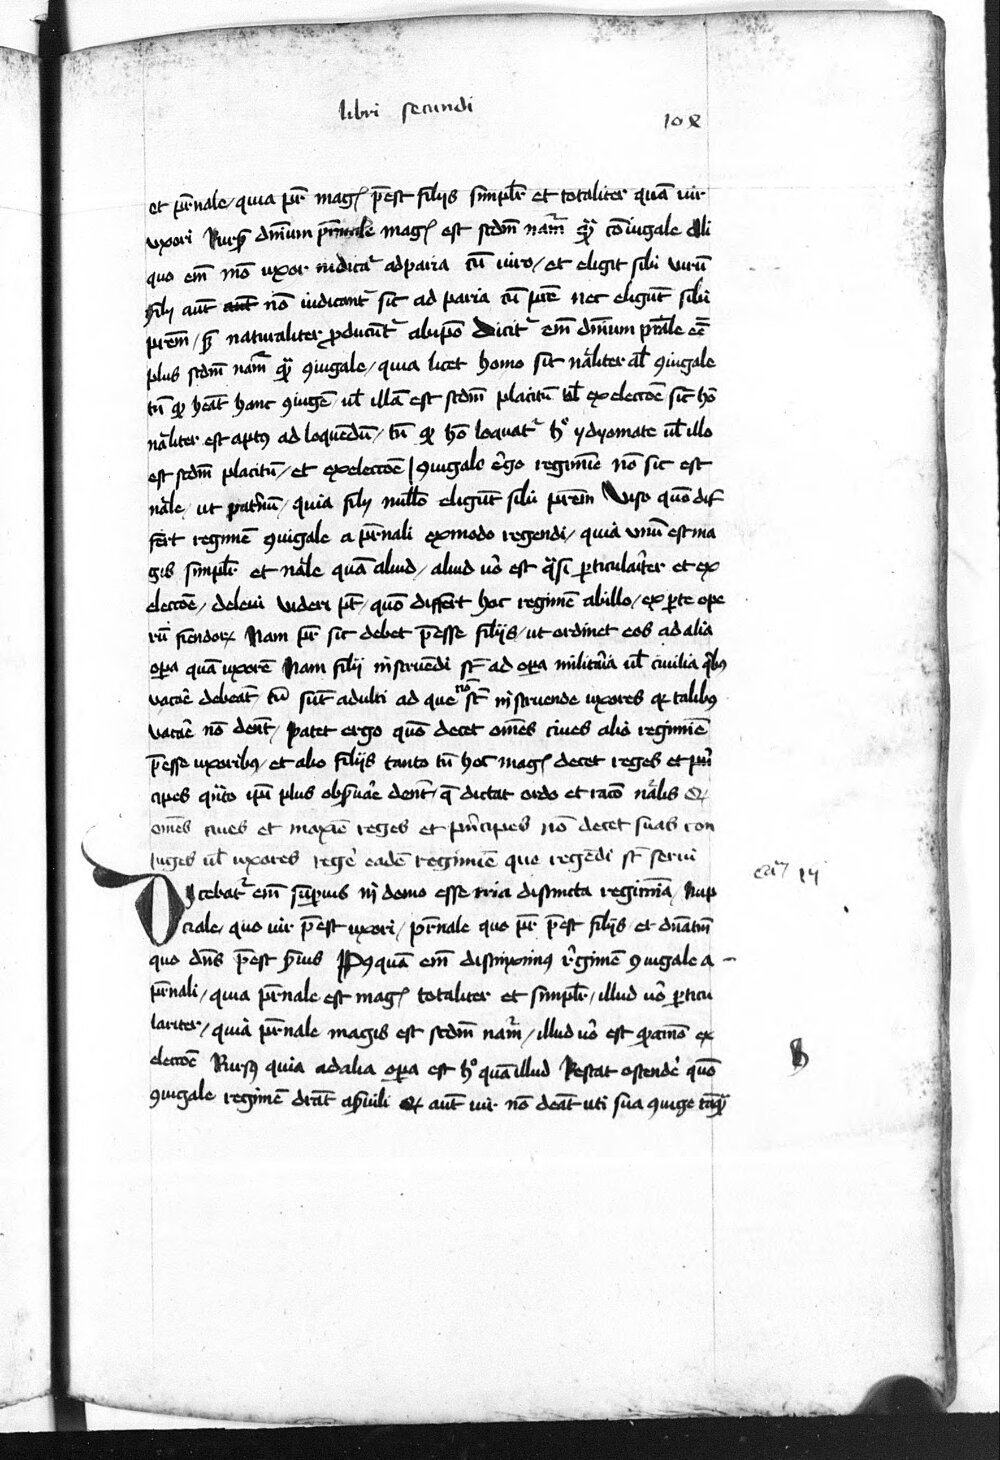 libri secundi
108
et pr̄nale / quia pr̄ mag̉ p̄est filijs simplr̄ et totaliter quā uir
uxori Rursꝰ dn̄ium pr̄nale mag̉ est scdm̄ nam̄ qͣ cōiugale
quo em̄ mō uxor iudicat ad paria cū uiro / et eligit sibi virū
filij aūt nō iudicant sic ad paria cū pr̄e nec eligūt sibi
pr̄em / sꝫ naturaliter producūt ab ip̄o dicit em̄ dn̄ium pr̄ale eē
plus scdm̄ nam̄ qͣ ꝯiugale / quia licet homo sit nāliter aīal ꝯiugale
tn̄ ꝙ hēat hanc ꝯiugē / ul̄ illā est scdm̄ placitū ul̄ ex eleccōe sic hō
nāliter est aptꝰ ad loquēdū / tn̄ ꝙ hō loquat hͦ ydyomate ul̄ illo
est scdm̄ placitū / et ex eleccōe / ꝯiugale ergo regimē nō sic est
nāle / ut pat̄nū / quia filij nullō eligūt sibi pr̄em Viso quō dif
fert regimē ꝯiugale a pr̄nali ex modo regendi / quia vnū est ma
gis simplr̄ et nāle quā aliud / aliud uͦ est qͣsi particulariter et ex
eleccōe / de leui videri pt̄ / quō differt hoc regimē ab illo / ex parte ope
rū fiendoꝝ Nam pr̄ sic debet p̄esse filijs / ut ordinet eos ad alia
opa quā uxorē Nam filij instruēdi st̄ ad opa militaria ul̄ ciuilia qͥbꝰ
vacar̄e debeāt cū sūt adulti ad que nō st̄ instruende uxores qꝫ talibꝰ
vacar̄e nō dēnt / patet ergo quō decet oēs ciues alio regimīe
p̄esse uxoribꝰ / et alio filijs tanto tn̄ hoc mag̉ decet reges et prin
cipes qͣnto ip̄i plus obseruar̄e dēnt / q̄ dictat ordo et racō nālis Qꝫ
oēs ciues et maxīe reges et principes nō decet suas con
iuges ul̄ uxores reger̄e eadē regimīe quo regēdi st̄ serui
Dicebat em̄ suprius in domo esse tria distincta regimīa / nup
ciale / quo uir p̄est uxori / pr̄nale quo pr̄ p̄est filijs / et dn̄atiū
quo dn̄s p̄est s̄uis Pꝰquā em̄ distinximꝰ regimē ꝯiugale a
pr̄nali / quia pr̄nale est mag̉ totaliter et simplr̄ / illud uͦ particu
lariter / quia pr̄nale magis est scdm̄ nam̄ / illud uͦ est ex
eleccōe Rursꝰ quia ad alia opa est hͦ quā illud Restat ostender̄e quō
ꝯiugale regimē aūt uir nō deāt uti sua ꝯiuge tāqͣ